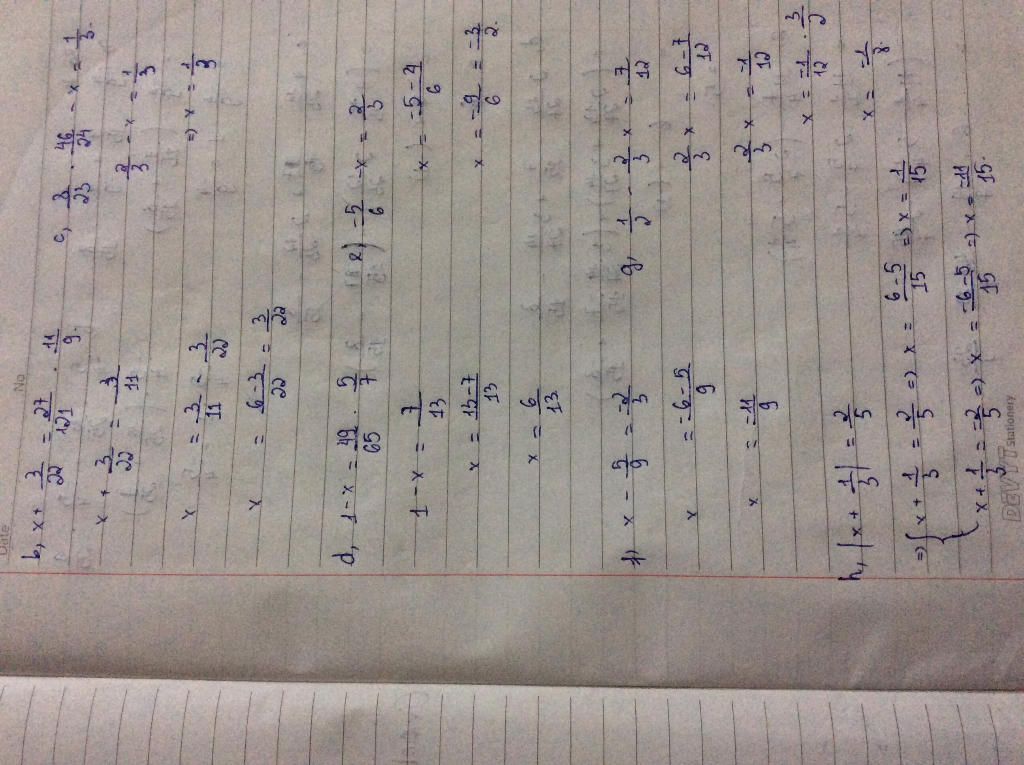 Date No
b, x + 3/22 = 27/121 . 11/9.
x + 3/22 = 3/11
x = 3/11 - 3/22
x = 6-3/22 = 3/22
c, 8/23 . 46/24 - x = 1/3.
2/3 - x = 1/3
=) x = 1/3
d, 1 - x = 49/65 . 5/7
1 - x = 7/13
x = 13-7/13
x = 6/13
e) -5/6 - x = 2/3
x = -5-4/6
x = -9/6 = -3/2.
f, x - 5/9 = -2/3
x = -6-5/9
x = -11/9
g, 1/2 - 2/3 x = 7/12
2/3 x = 6-7/12
2/3 x = -1/12
x = -1/12 . 3/2
x = -1/8.
h, | x + 1/3 | = 2/5
=) { x + 1/3 = 2/5 =) x = 6-5/15 =) x = 1/15
x + 1/3 = -2/5 =) x = -6-5/15 =) x = -11/15.
Stationery